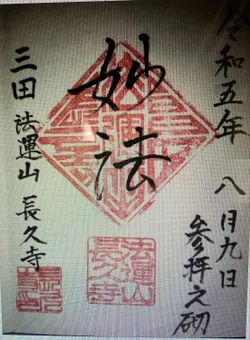 令和五年 八月九日
参拝之砌
妙法
法運山
長久寺
三田 法運山 長久寺